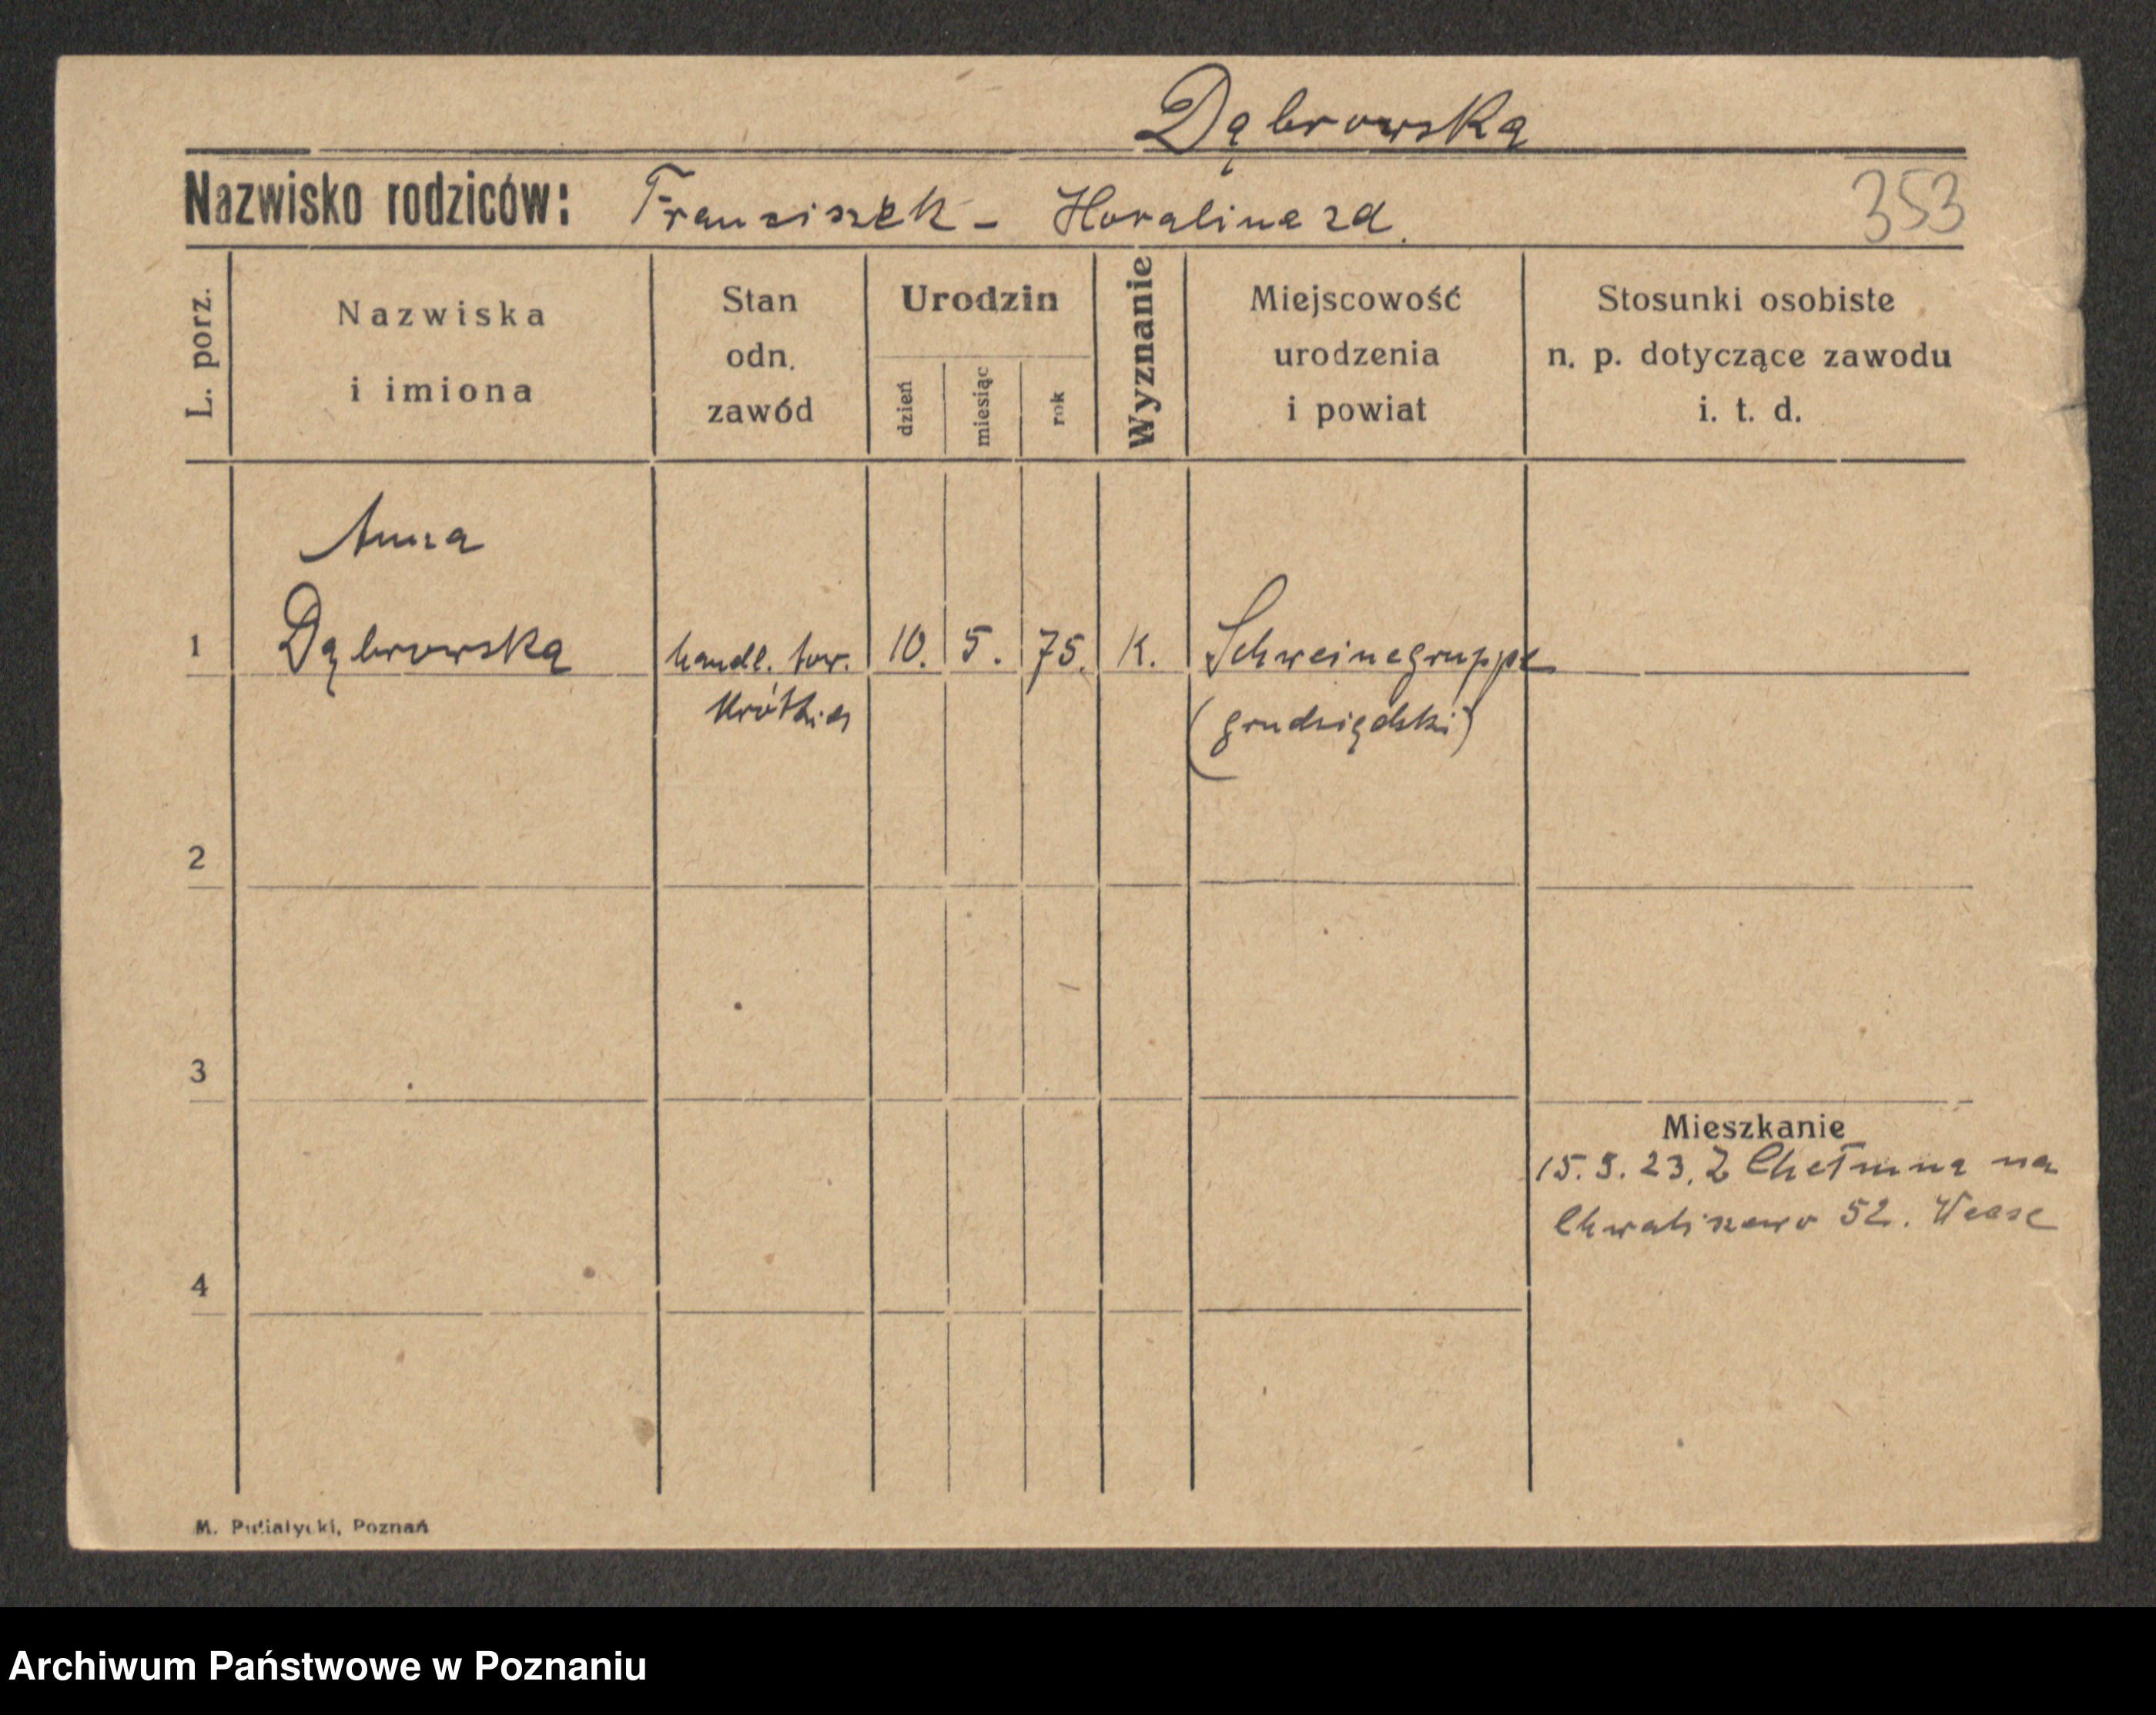 Dąbrowska
Nazwisko rodziców: Franciszek - 353
L. porz.
Nazwiska i imiona
Stan odn. zawód
Urodzin
dzień miesiąc rok
Wyznanie
Miejscowość urodzenia i powiat
Stosunki osobiste n. p. dotyczące zawodu i. t. d.
Anna
1 Dąbrowska handl. tow. 10. 5. 75. K. Schweinegruppe
krótkich (grudziądzki)
2
3
Mieszkanie
15. 5. 23. Z Chełmna na
Chwaliszewo 52.
4
M. Putiatycki, Poznań
Archiwum Państwowe w Poznaniu